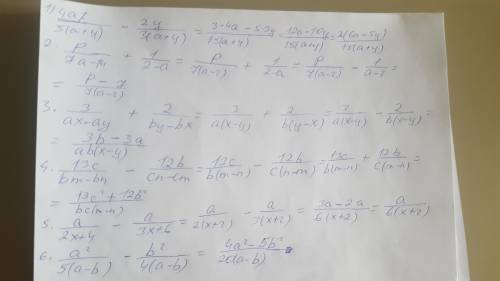 1) 4a/5(a+y) - 2y/3(a+y) = 3·4a - 5·2y/15(a+y) = 12a-10y/15(a+y) = 2(6a-5y)/15(a+y)
2. P/7a-14 + 1/2-a = P/7(a-2) + 1/2-a = P/7(a-2) - 1/a-2 =
= P-7/7(a-2)
3. 3/ax-ay + 2/by-bx = 3/a(x-y) + 2/b(y-x) = 3/a(x-y) - 2/b(x-y) =
= 3b-3a/ab(x-y)
4. 13c/bm-bn - 12b/cn-cm = 13c/b(m-n) - 12b/c(n-m) = 13c/b(m-n) + 12b/c(m-n) =
= 13c²+12b²/bc(m-n)
5. a/2x+4 - a/3x+6 = a/2(x+2) - a/3(x+2) = 3a-2a/6(x+2) = a/6(x+2)
6. a²/5(a-b) - b²/4(a-b) = 4a²-5b²/20(a-b)